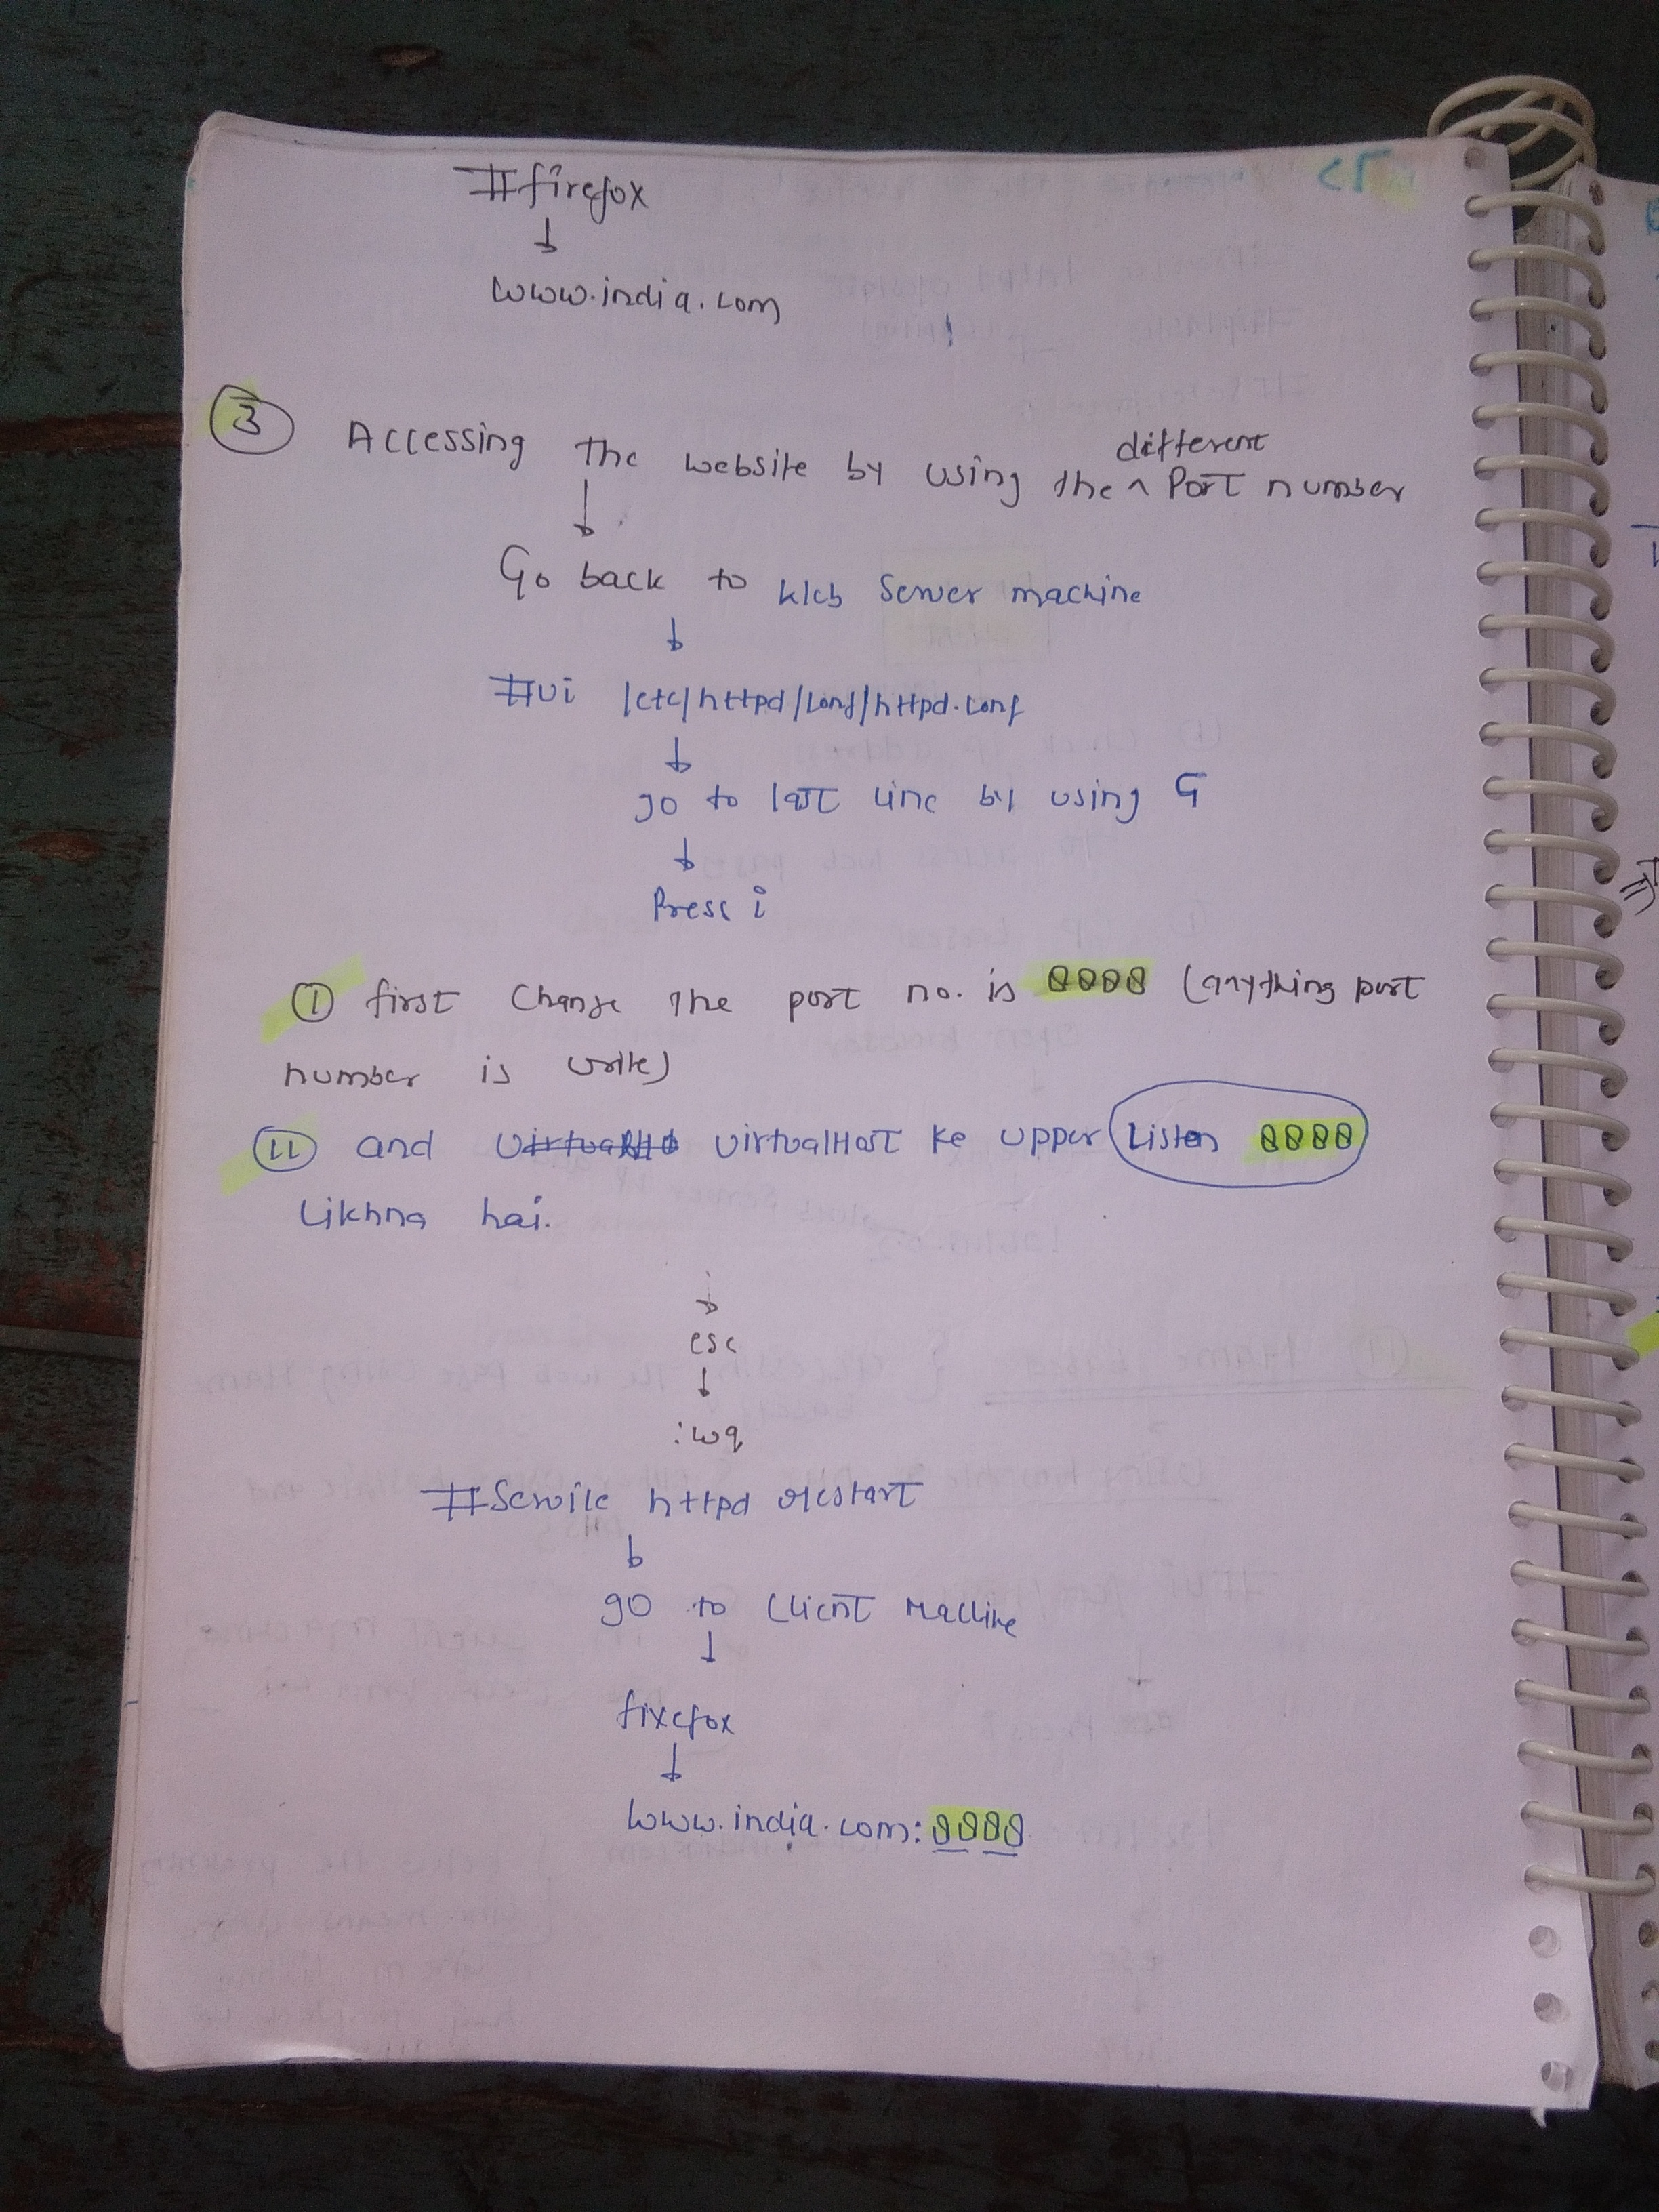 #firefox
↓
www.india.com
③ Accessing the website by using the ^ different Port number
↓
Go back to Web Server machine
↓
#vi /etc/httpd/conf/httpd.conf
↓
go to last line by using G
↓
Press i
① first Change the port no. is 8888 (anything port
number is write)
② and VirtualHost ke upper Listen 8888
Likhna hai.
↓
esc
↓
:wq
#Service httpd restart
↓
go to Client Machine
↓
firefox
↓
www.india.com:8888